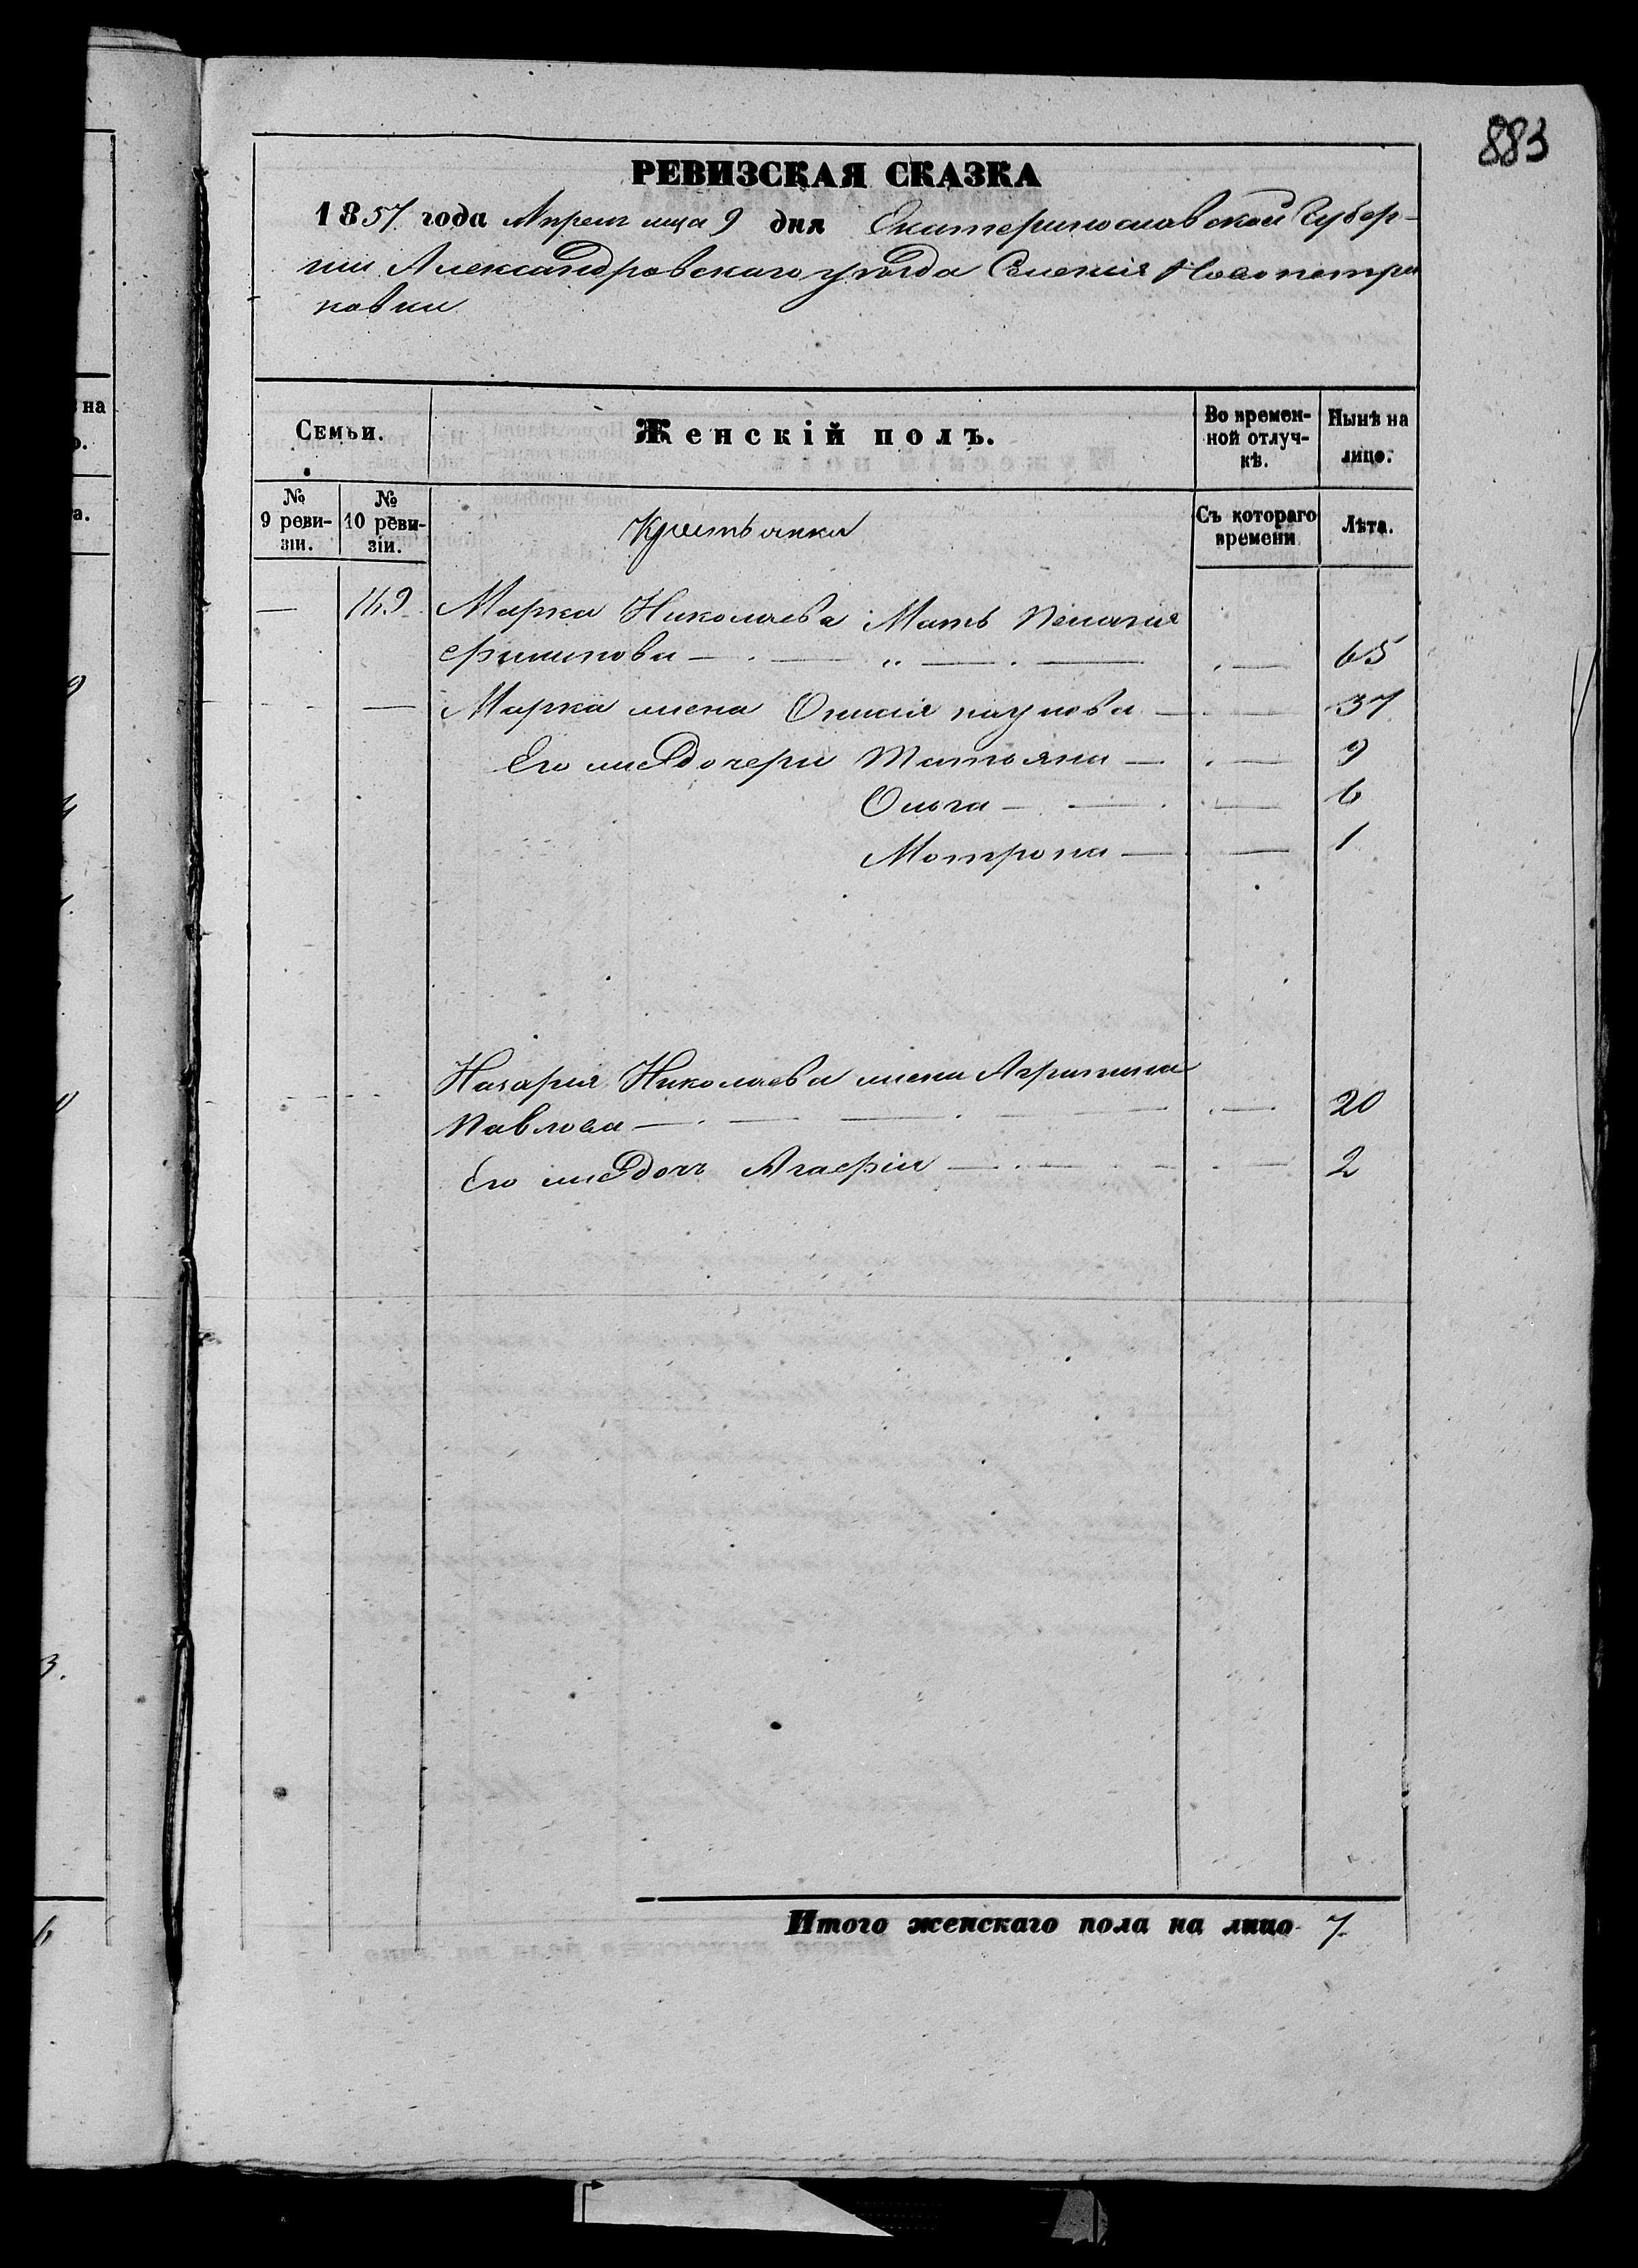 883
РЕВИЗСКАЯ СКАЗКА
1857 года Апреля мца 9 дня Екатеринославской Губер-
нии Александровскаго уѣзда Селенія Новопетри
ковки
Семьи.
Женскій полъ.
Во времен-
ной отлуч-
кѣ.
Нынѣ на
лицо.
№
9 реви-
зіи.
№
10 реви-
зіи.
Крестьянки
Съ котораго
времени
Лѣта.
— 149 Марка Николаева Мать Пелагия
Филипова — " — 65
— Марка жена Наумова — 37
Его же дочери Татьяна — 9
Ольга — 6
Мотрона — 1
Назария Николаева жена Агрипина
Павлова — 20
Его же дочь Агафіи — 2
Итого женскаго пола на лицо 7